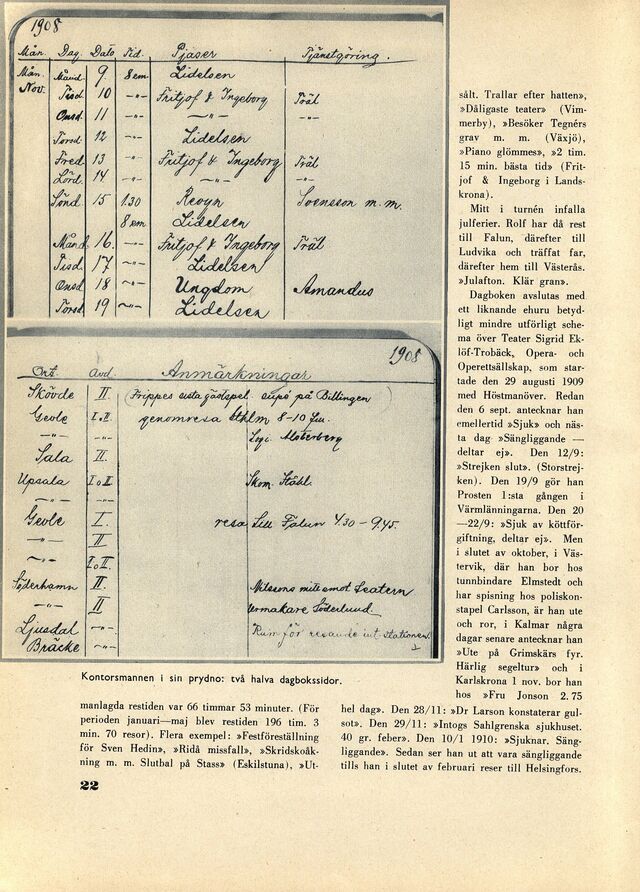 1908
Mån. Dag. Dato Tid. Pjäser Tjänstgöring.
Mån. Månd. 9. 8 em Lidelsen
Nov. Tisd. 10 -"- Fritjof & Ingeborg Träl
Onsd. 11 -"- -"-
Torsd 12 -"- Lidelsen
Fred 13 -"- Fritjof & Ingeborg Träl
Lörd. 14 -"- -"- -"-
Sönd. 15 1.30 Revyn Svensson m.m.
8 em Lidelsen
Månd. 16. -"- Fritjof & Ingeborg Träl
Tisd. 17 -"- Lidelsen
Onsd 18 -"- Ungdom Amandus
Torsd 19 -"- Lidelsen
1908
Ort. Avd. Anmärkningar
Skövde II. (Frippes sista gästspel. supé på Billingen
Gevle I.II genomresa Sthlm 8-10 fm.
-"- -"- Logi Alsterberg
Sala II.
Upsala I o II Skom. Ståhl.
-"- -"-
Gevle I. resa till Falun 4.30-9.45.
-"- II
-"- I o II
Söderhamn II. Nilssons mitt emot teatern
-"- II Urmakare Söderlund
Ljusdal -"- Rum för resande int. stationen
Bräcke -"-
Kontorsmannen i sin prydno: två halva dagbokssidor.
manlagda restiden var 66 timmar 53 minuter. (För
perioden januari—maj blev restiden 196 tim. 3
min. 70 resor). Flera exempel: »Festföreställning
för Sven Hedin», »Ridå missfall», »Skridskoåk-
ning m. m. Slutbal på Stass» (Eskilstuna), »Ut-
sålt. Trallar efter hatten»,
»Dåligaste teater» (Vim-
merby), »Besöker Tegnérs
grav m. m. (Växjö),
»Piano glömmes», »2 tim.
15 min. bästa tid» (Frit-
jof & Ingeborg i Lands-
krona).
Mitt i turnén infalla
julferier. Rolf har då rest
till Falun, därefter till
Ludvika och träffat far,
därefter hem till Västerås.
»Julafton. Klär gran».
Dagboken avslutas med
ett liknande ehuru betyd-
ligt mindre utförligt sche-
ma över Teater Sigrid Ek-
löf-Trobäck, Opera- och
Operettsällskap, som star-
tade den 29 augusti 1909
med Höstmanöver. Redan
den 6 sept. antecknar han
emellertid »Sjuk» och näs-
ta dag »Sängliggande —
deltar ej». Den 12/9:
»Strejken slut». (Storstrej-
ken). Den 19/9 gör han
Prosten 1:sta gången i
Värmlänningarna. Den 20
—22/9: »Sjuk av köttför-
giftning, deltar ej». Men
i slutet av oktober, i Väs-
tervik, där han bor hos
tunnbindare Elmstedt och
har spisning hos poliskon-
stapel Carlsson, är han ute
och ror, i Kalmar några
dagar senare antecknar han
»Ute på Grimskärs fyr.
Härlig segeltur» och i
Karlskrona 1 nov. bor han
hos »Fru Jonson 2.75
hel dag». Den 28/11: »Dr Larson konstaterar gul-
sot». Den 29/11: »Intogs Sahlgrenska sjukhuset.
40 gr. feber». Den 10/1 1910: »Sjuknar. Säng-
liggande». Sedan ser han ut att vara sängliggande
tills han i slutet av februari reser till Helsingfors.
22